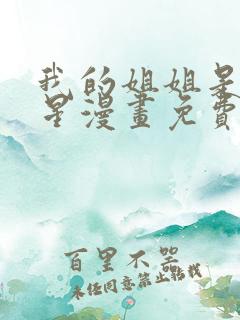 我的姐姐是
星漫畫免費
百里不哭
未经同意禁止转载